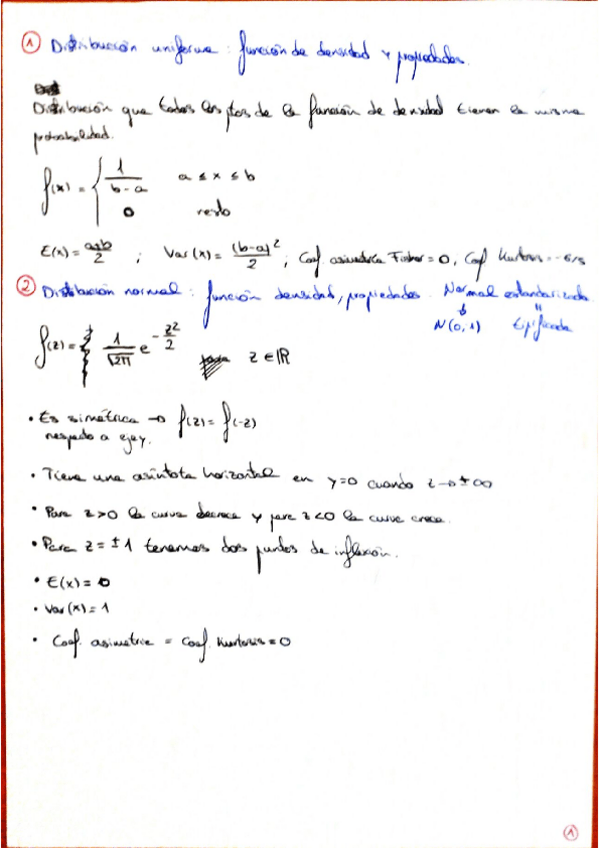 ① Distribución uniforme: función de densidad y propiedades.
Distribución que todos los ptos de la función de densidad tienen la misma
probabilidad.
f(x) = { 1/(b-a) a ≤ x ≤ b
0 resto
E(x) = (a+b)/2 ; Var(x) = (b-a)²/2 ; Coef. asimetría Fisher = 0, Coef Kurtosis = -6/5
② Distribución normal: función densidad, propiedades. Normal estandarizada
↓ "
N(0,1) Tipificada
f(z) = 1/√(2π) e^(-z²/2) z ∈ ℝ
• Es simétrica → f(z) = f(-z)
respecto a eje y.
• Tiene una asíntota horizontal en y=0 cuando z → ±∞
• Para z>0 la curva decrece y para z<0 la curva crece.
• Para z = ±1 tenemos dos puntos de inflexión.
• E(x) = 0
• Var(x) = 1
• Coef. asimetría = Coef. Kurtosis = 0
①